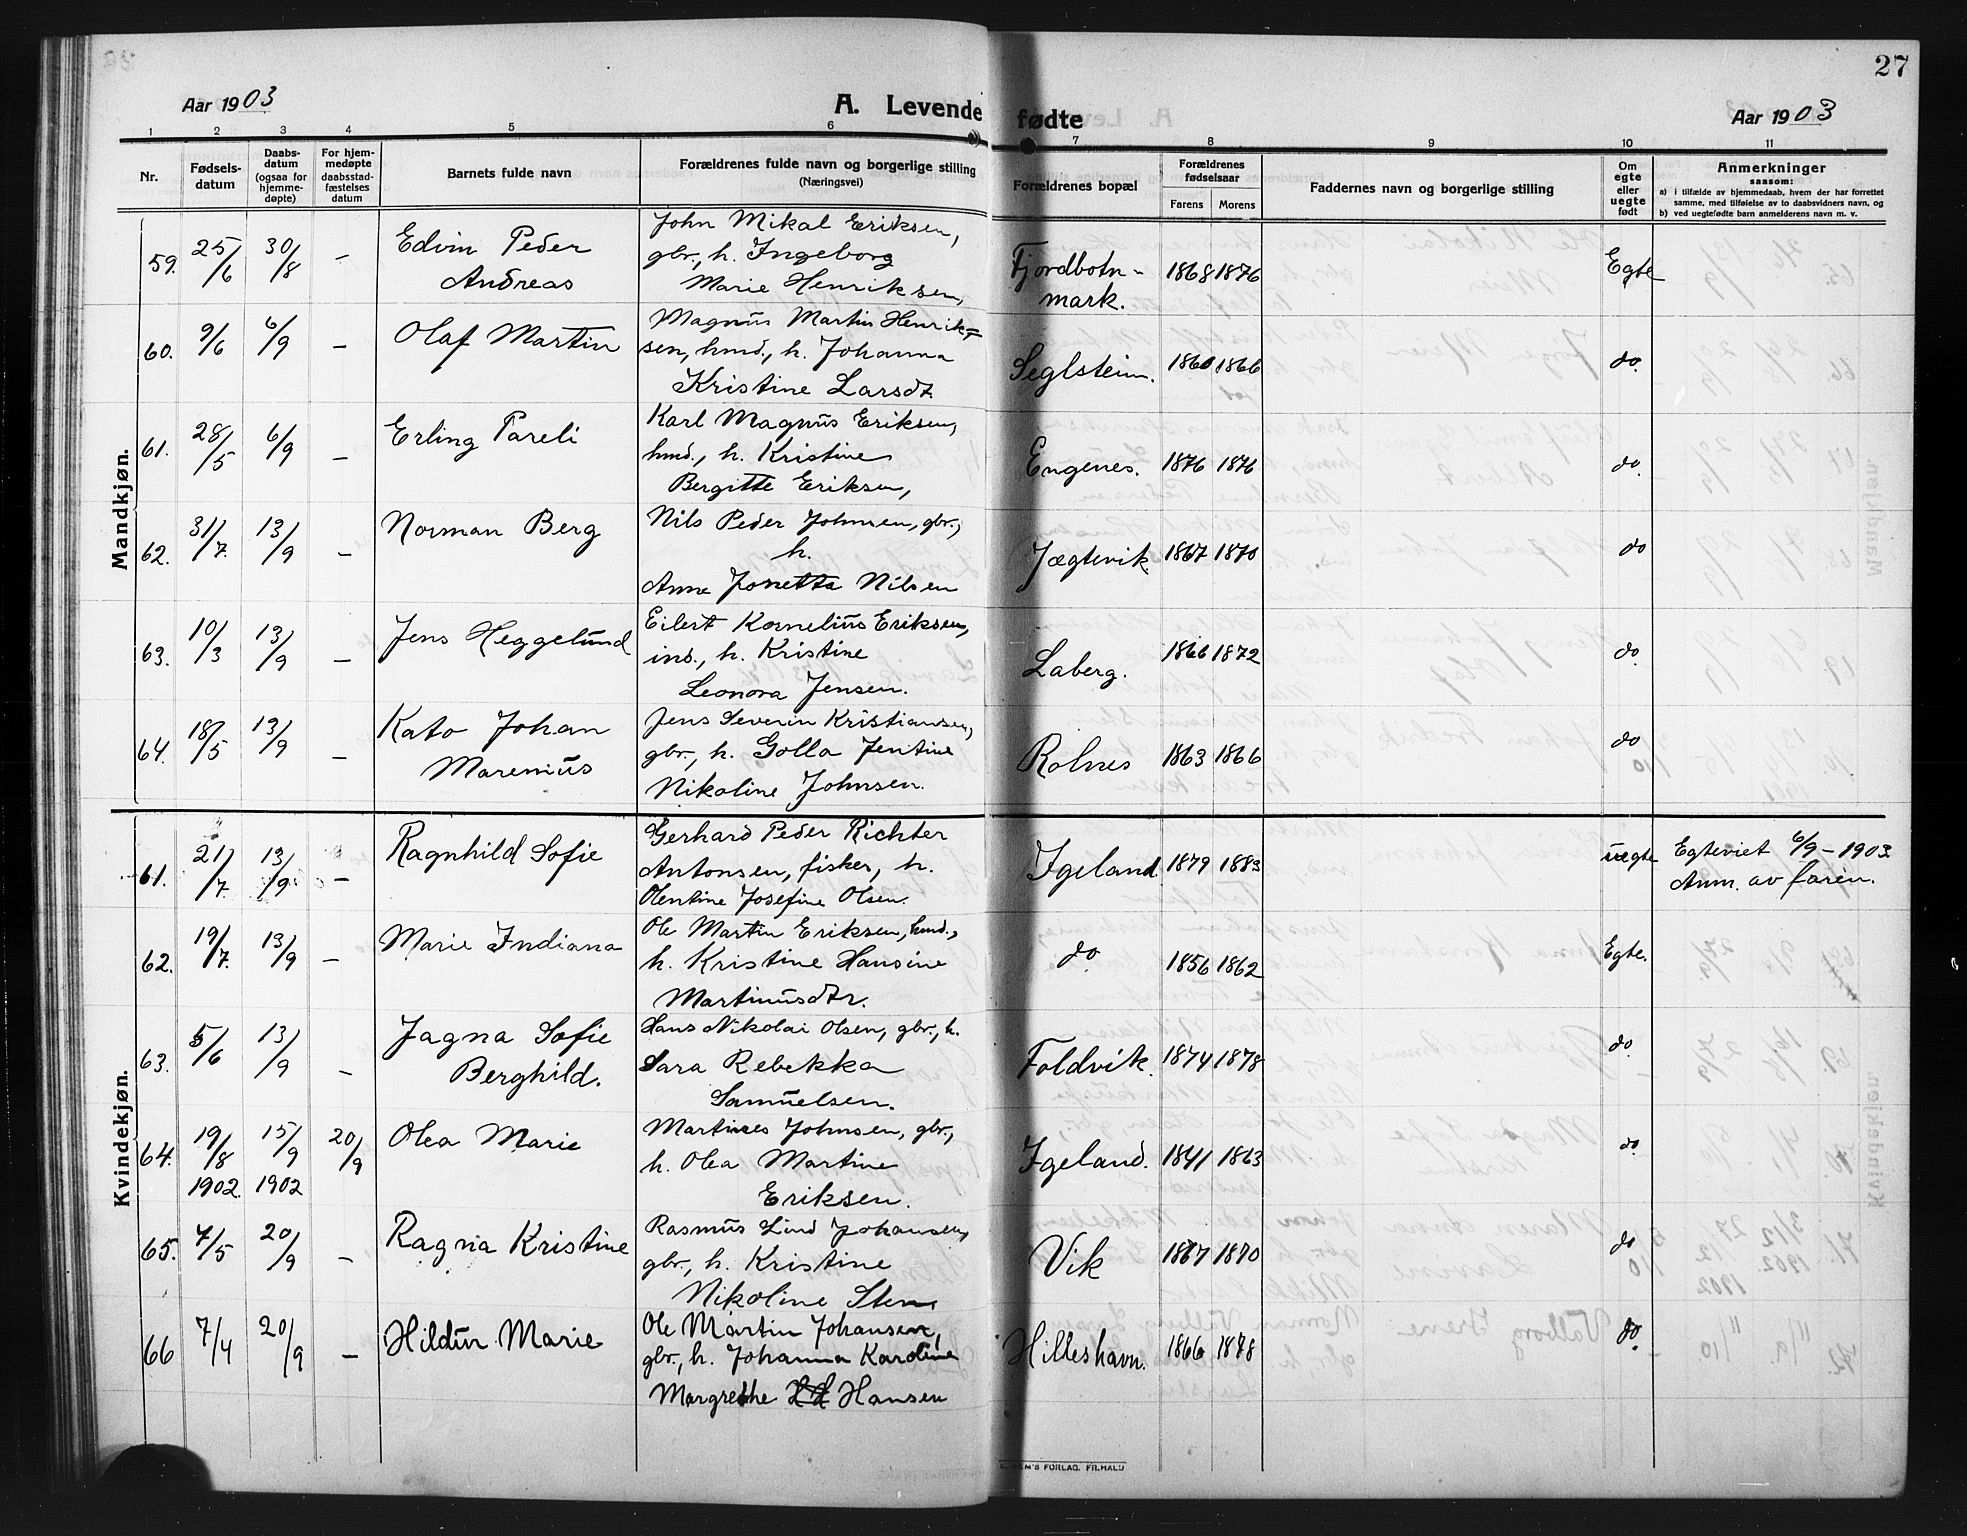 27
Aar 1903
A. Levende fødte
Aar 1903
1 2 3 4 5 6 7 8 9 10 11
Nr.
Fødsels-
datum
Daabs-
datum
(ogsaa for
hjemme-
døpte)
For hjem-
medøpte
daabsstad-
fæstelses
datum
Barnets fulde navn
Forældrenes fulde navn og borgerlige stilling
(Næringsvei)
Forældrenes bopæl
Forældrenes
fødselsaar
Farens Morens
Faddernes navn og borgerlige stilling
Om
egte
eller
uegte
født
Anmerkninger
saasom:
a) i tilfælde av hjemmedaab, hvem der har forrettet
samme, med tilføielse av to daabsvidners navn, og
b) ved uegtefødte barn anmelderens navn m. v.
Mandkjøn.
59. 25/6 30/8 – Edvin Peder
Andreas
John Mikal Eriksen,
gbr., h. Ingeborg
Marie Henriksen,
Fjordbotn-
mark.
1868 1876 Egte
60. 9/6 6/9 – Olaf Martin
Magnus Martin Henrik-
sen, hmd., h. Johanna
Kristine Larsdt.
Seglsteim. 1860 1866 do.
61. 28/5 6/9 – Erling Pareli
Karl Magnus Eriksen,
hmd., h. Kristine
Bergitte Eriksen,
Engenes. 1876 1876 do.
62. 31/7. 13/9 – Norman Berg
Nils Peder Johnsen, gbr.,
h.
Anne Jonetta Nilsen
Jægtevik. 1867 1870 do
63. 10/3 13/9 – Jens Heggelund
Eilert Kornelius Eriksen,
ind., h. Kristine
Leonora Jensen.
Laberg. 1866 1872 do.
64. 18/5 13/9 – Kato Johan
Marenius
Jens Severin Kristiansen,
gbr., h. Golla Jentine
Nikoline Johnsen.
Rolnes 1863 1866 do
Kvindekjøn.
61. 21/7 13/9 – Ragnhild Sofie
Gerhard Peder Richter
Antonsen, fisker, h.
Olentine Josefine Olsen.
Igeland. 1879 1883 uegte
Egteviet 6/9 – 1903.
Anm. av faren.
62. 19/7. 13/9 – Marie Indiana
Ole Martin Eriksen, hmd.,
h. Kristine Hansine
Martinusdtr.
do. 1856 1862 Egte.
63. 5/6 13/9 – Jagna Sofie
Berghild.
Hans Nikolai Olsen, gbr., h.
Sara Rebekka
Samuelsen.
Foldvik. 1874 1878 do.
64. 19/8 1902. 15/9 1902 20/9 Olea Marie
Martines Johnsen, gbr.,
h. Olea Martine
Eriksen.
Igeland. 1841 1863 do.
65. 7/5 20/9 – Ragna Kristine
Rasmus Lind Johansen,
gbr., h. Kristine
Nikoline Sten
Vik 1867 1870 do
66 7/4 20/9 – Hildur Marie
Ole Martin Johansen,
gbr., h. Johanna Karoline
Margrethe Hansen
Hilleshavn. 1866 1878 do.
FORLAG. FR.HALD